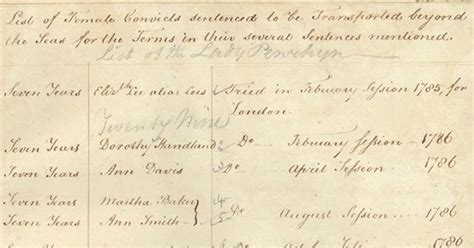 List of Female Convicts sentenced to be Transported beyond
the Seas for the Terms in their several Sentences mentioned.
List of the Lady Penrhyn
Seven Years Elizth Lee alias Lees 1 Tried in February Session 1785, for
London.
Twenty Nine
Seven Years Dorothy Handland 2 Do February Session - 1786
Seven Years Ann Davis 3 Do April Session - 1786
Seven Years Martha Baker 4
Seven Years Ann Smith 5 Do August Session - 1786